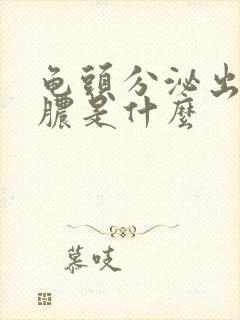 龟頭分泌出
膿是什麼
慕吱